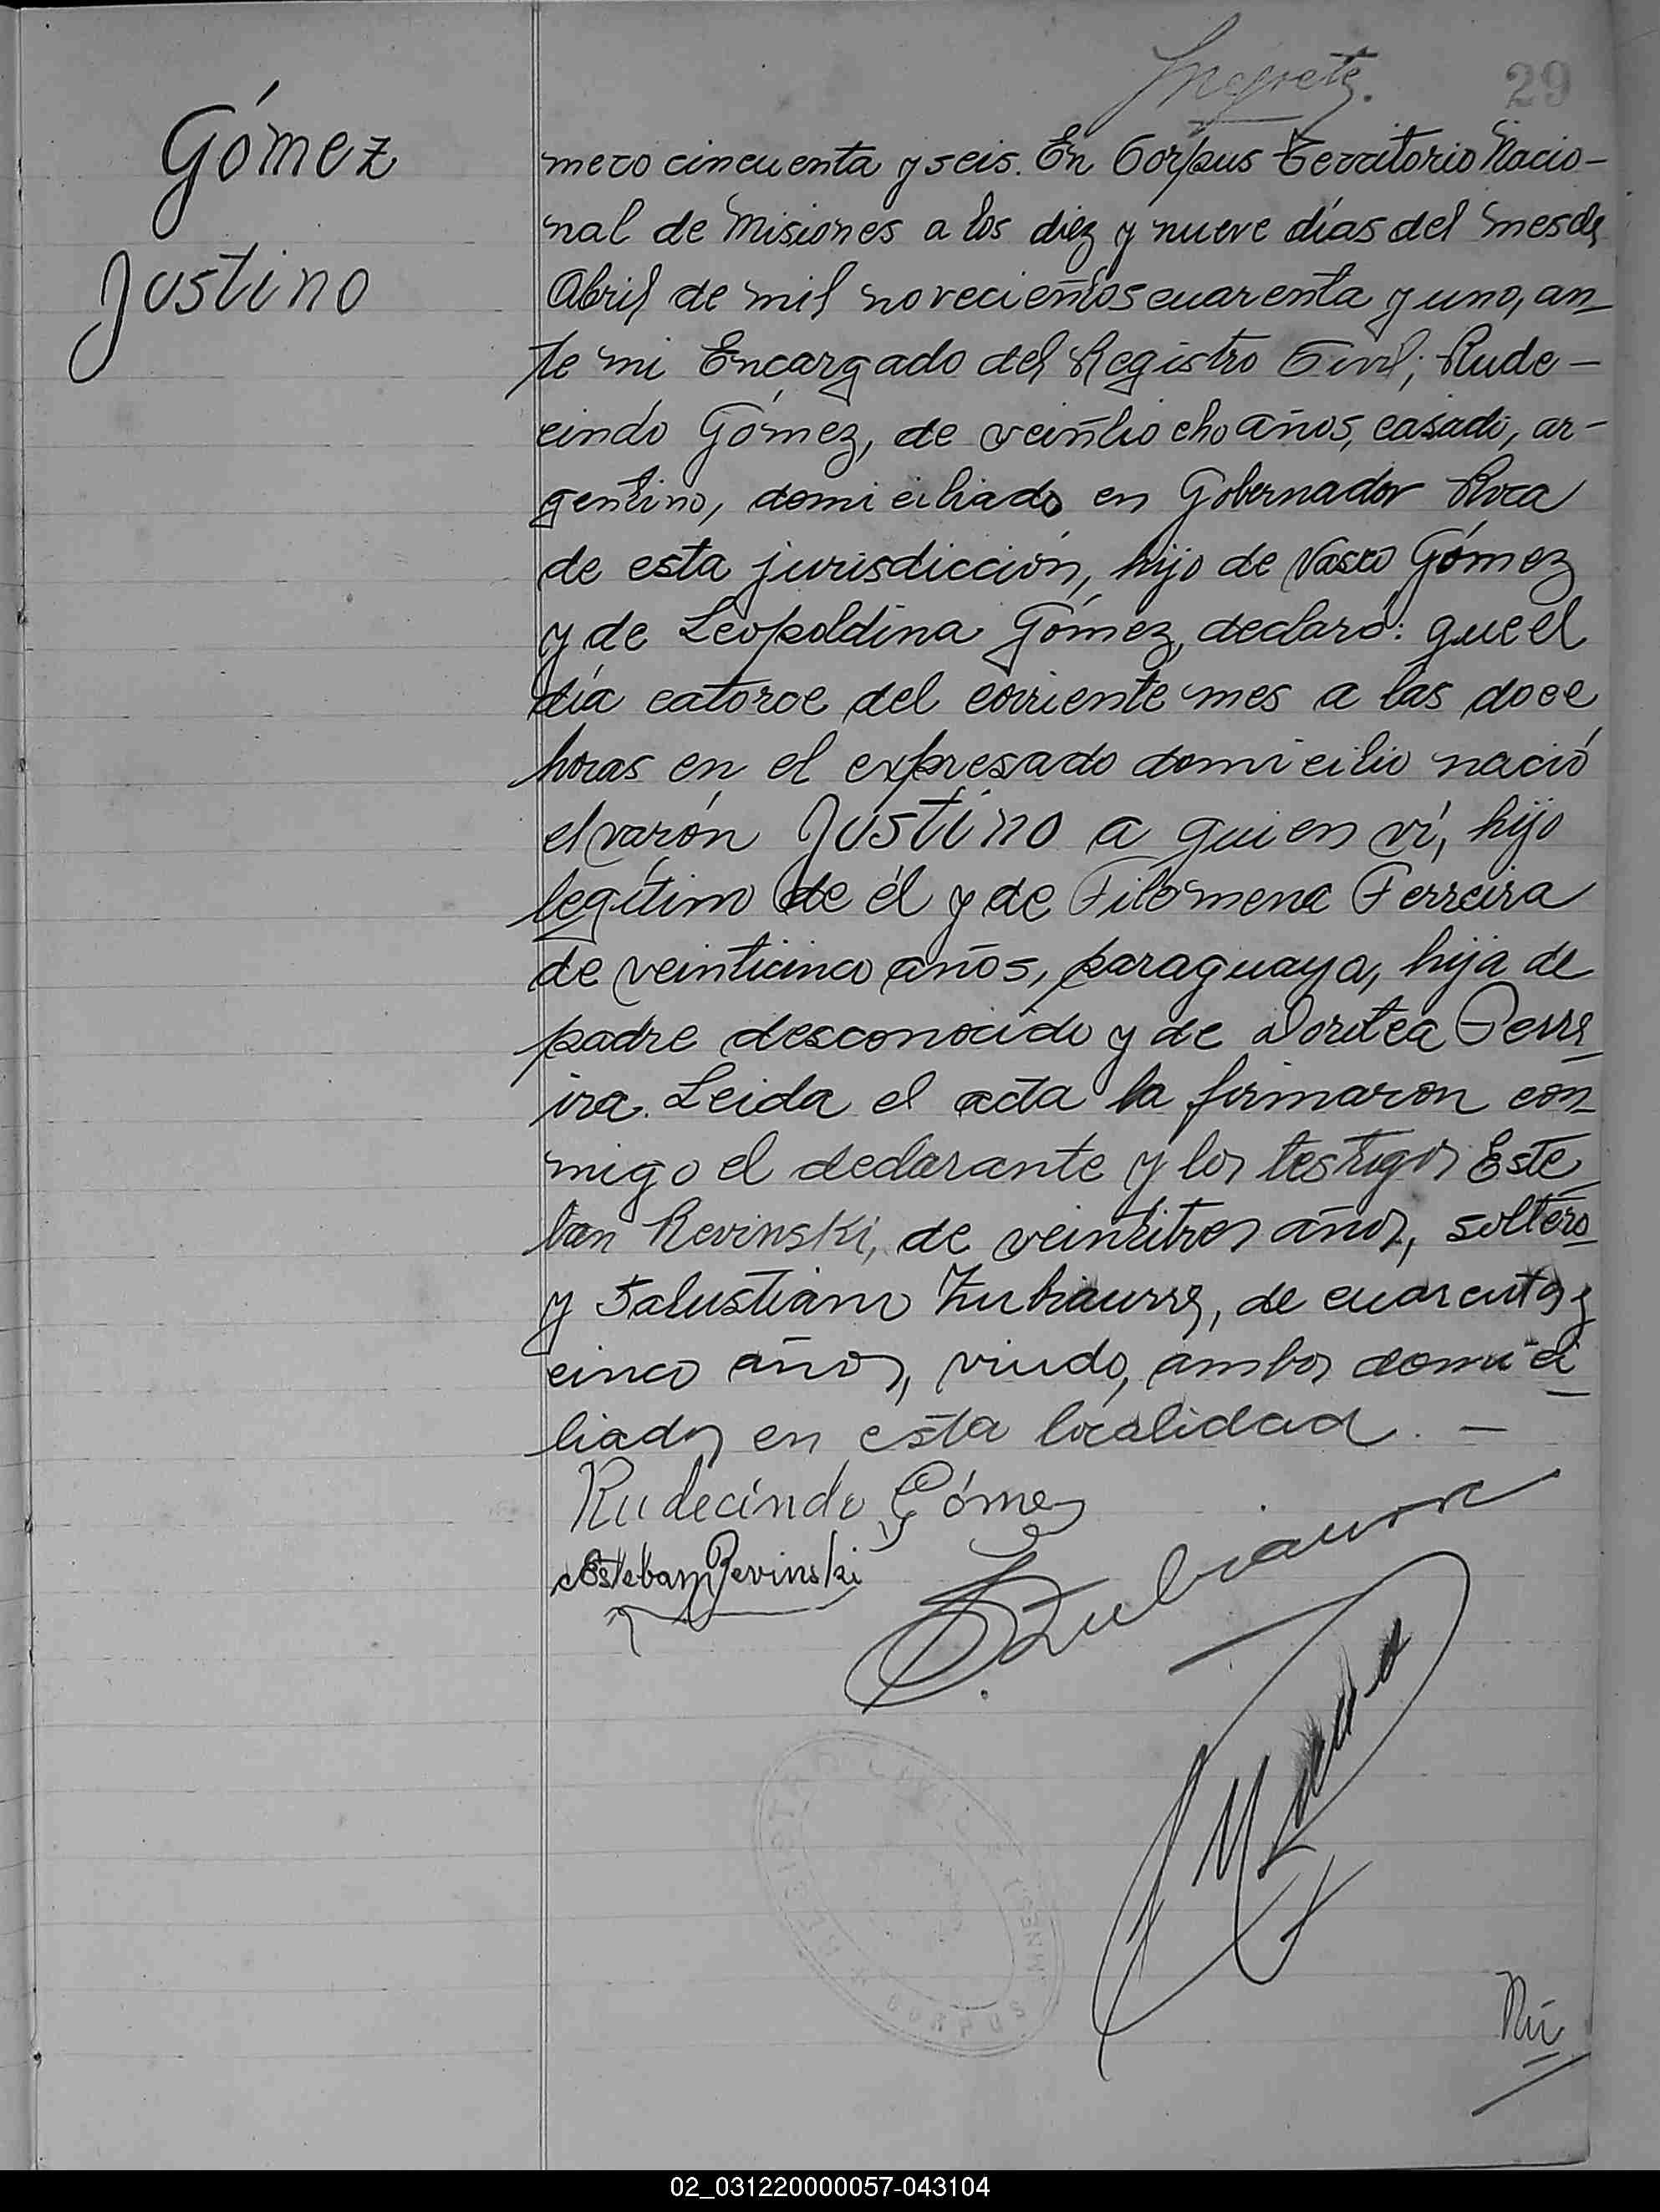 29
Gómez
Justino
mero cincuenta y seis. En Corpus Territorio Nacio-
nal de Misiones a los diez y nueve días del mes de
Abril de mil novecientos cuarenta y uno, an-
te mi Encargado del Registro Civil; Rude-
cindo Gómez, de veintiocho años, casado, ar-
gentino, domiciliado en Gobernador Roca
de esta jurisdicción, hijo de Vasco Gómez
y de Leopoldina Gómez, declaró: que el
día catorce del corriente mes a las doce
horas en el expresado domicilio nació
el varón Justino a quien ví, hijo
legítimo de él y de Filomena Ferreira
de veinticinco años, paraguaya, hija de
padre desconocido y de Dorotea Ferre
ira. Leida el acta la firmaron con-
migo el declarante y los testigos Este
ban Revinski, de veintitres años, soltero
y Salustiano Zubiaurre, de cuarenta y
cinco años, viudo, ambos domici-
liados en esta localidad. -
Rudecindo Gómez
Esteban Revinski
S Zubiaurre
REGISTRO CIVIL
CORPUS
Nú
02_031220000057-043104